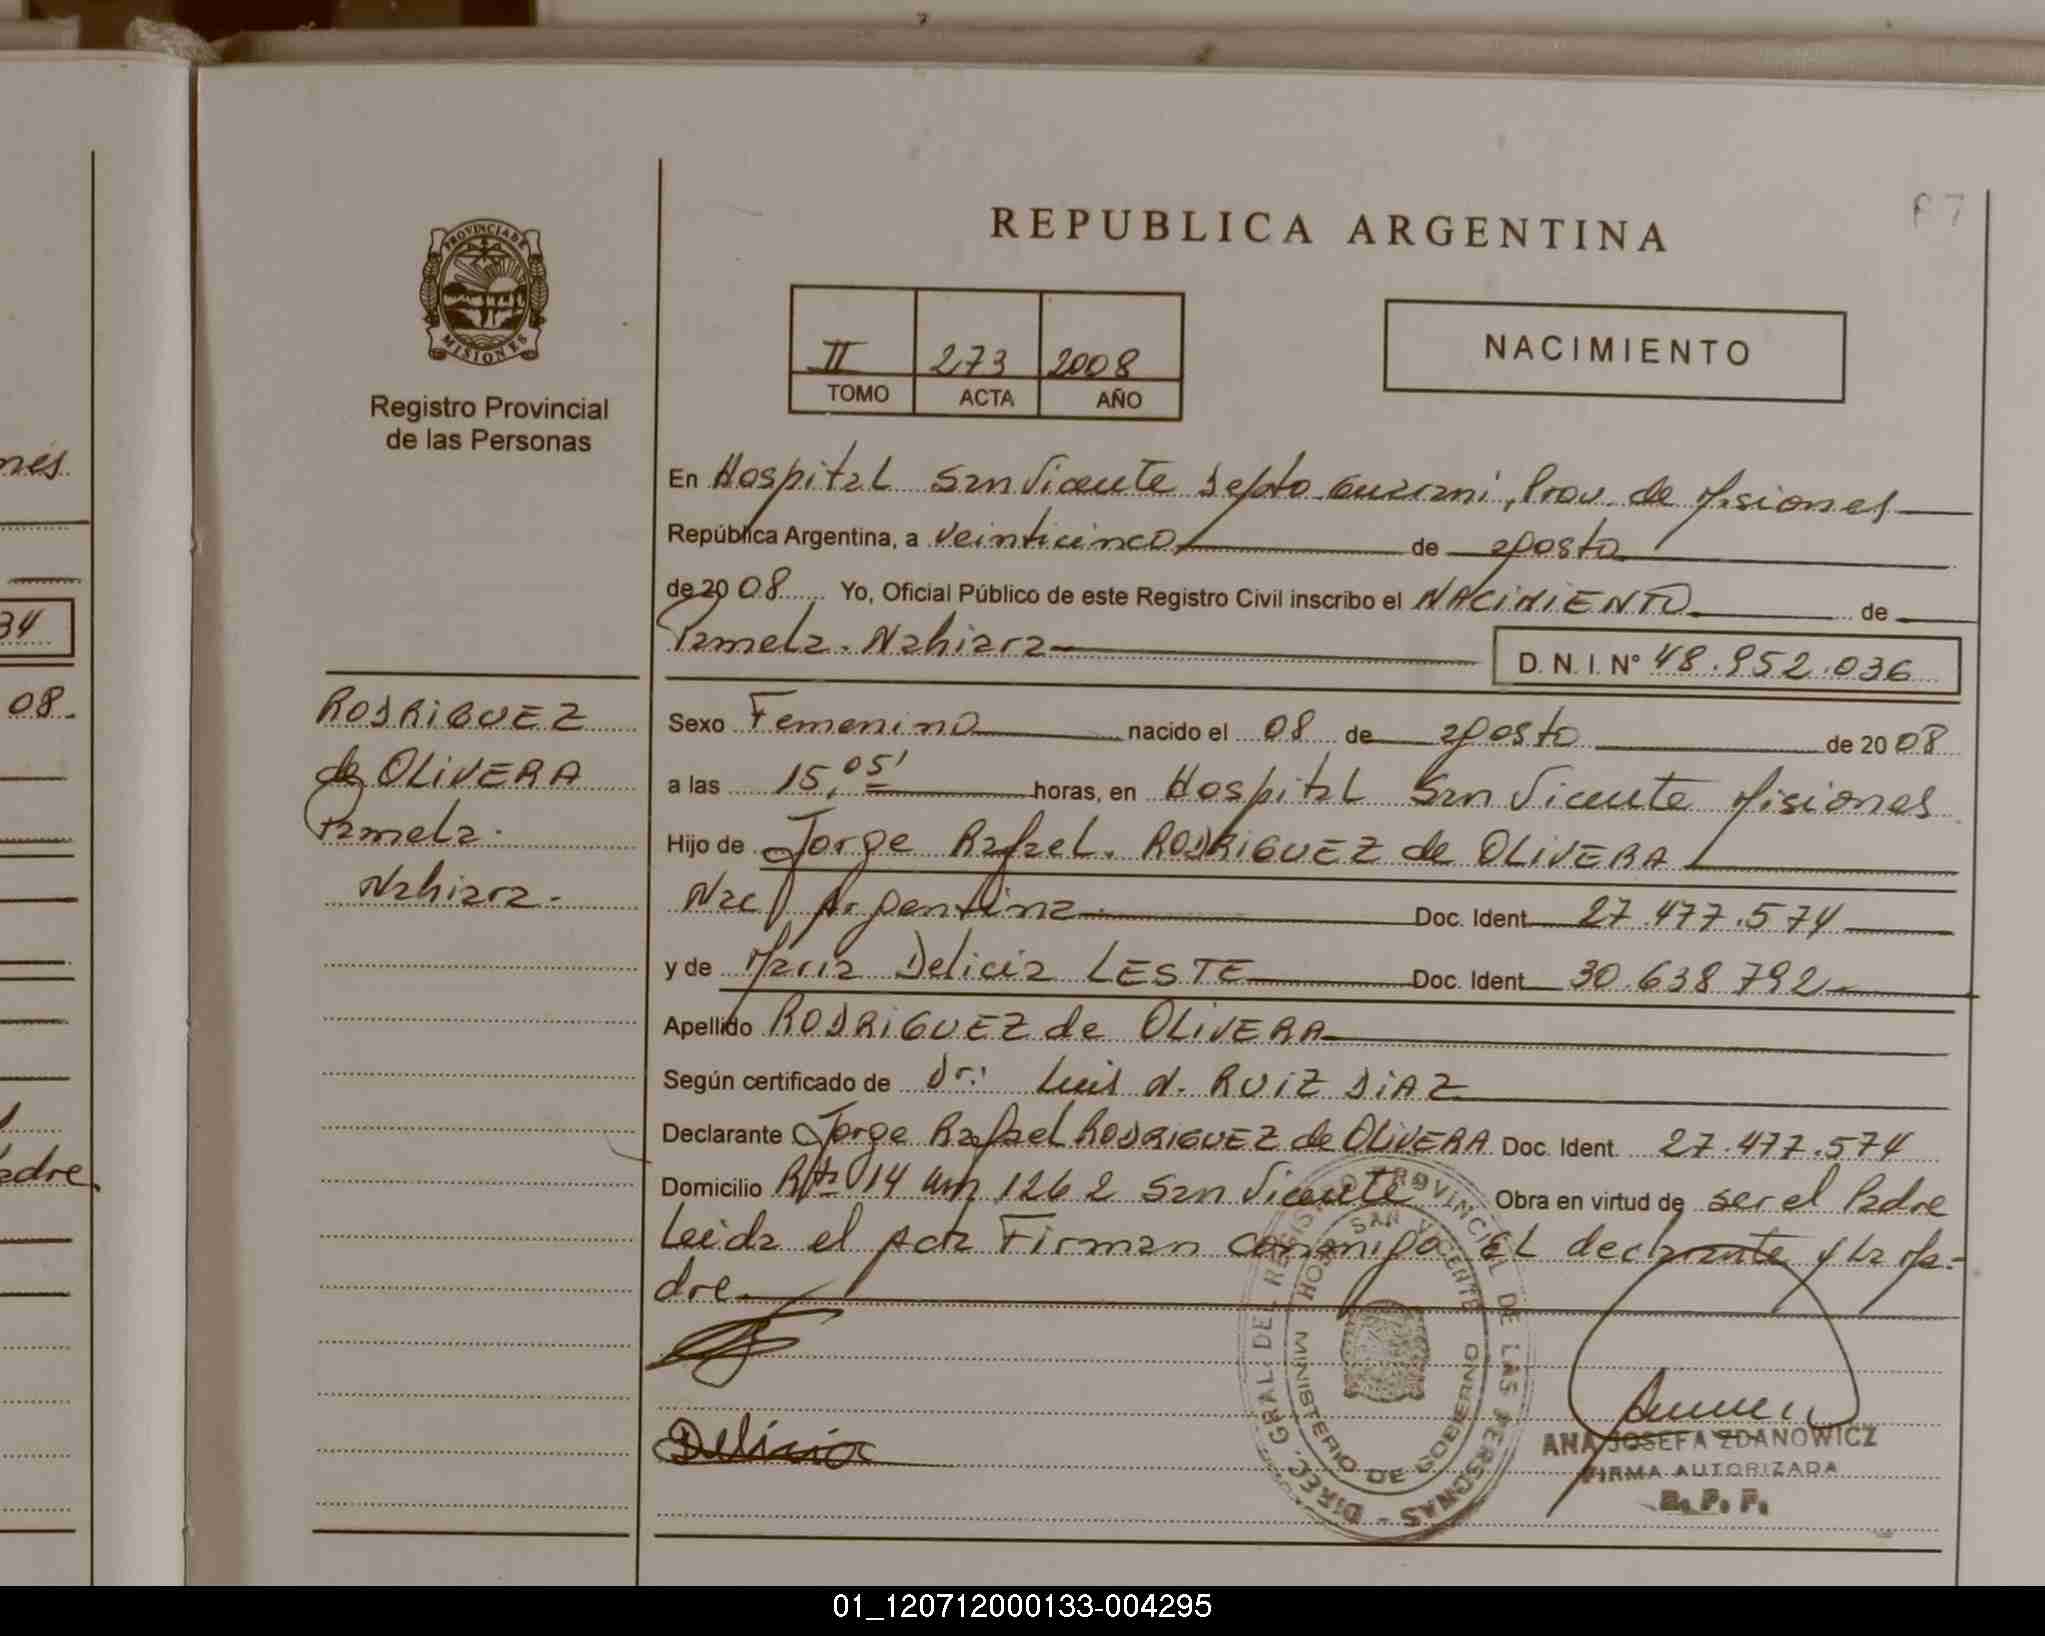 REPUBLICA ARGENTINA
PROVINCIA DE
MISIONES
Registro Provincial
de las Personas
II 273 2008
TOMO ACTA AÑO
NACIMIENTO
En Hospital San Vicente Depto Guarani, Prov. de Misiones
República Argentina, a veinticinco de agosto
de 2008 Yo, Oficial Público de este Registro Civil inscribo el NACIMIENTO de
Pamela. Nahiara D. N. I. N° 48.952.036
RODRIGUEZ
de OLIVERA
Pamela.
Nahiara.
Sexo Femenino nacido el 08 de agosto de 2008
a las 15,05' horas, en Hospital San Vicente Misiones
Hijo de Jorge Rafael. RODRIGUEZ de OLIVERA
Nac Argentina Doc. Ident. 27.477.574
y de Maria Delicia LESTE Doc. Ident. 30.638 792
Apellido RODRIGUEZ de OLIVERA
Según certificado de Dr: Luis N. RUIZ DIAZ
Declarante Jorge Rafael RODRIGUEZ de OLIVERA Doc. Ident. 27.477.574
Domicilio Rta 14 km 1262 San Vicente Obra en virtud de ser el Padre
Leida el Acta Firman conmigo EL declarante y La Ma-
dre
Delicia
DIREC. GRAL. DEL REGISTRO PROVINCIAL DE LAS PERSONAS
HOSP SAN VICENTE
MINISTERIO DE GOBIERNO
ANA JOSEFA ZDANOWICZ
FIRMA AUTORIZADA
R. P. P.
nes
34
08.
adre.
01_120712000133-004295